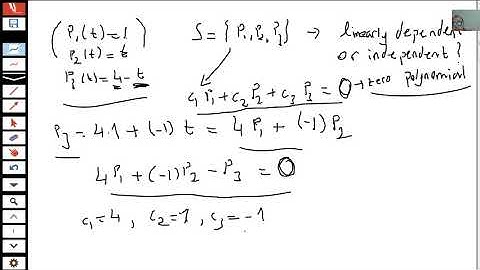 P₁(t)=1
P₂(t)=t
P₃(t)=4-t
S={P₁,P₂,P₃} → linearly dependent
or independent?
c₁P₁+c₂P₂+c₃P₃=0 → zero polynomial
P₃=4.1+(-1)t=4P₁+(-1)P₂
4P₁+(-1)P₂-P₃=0
c₁=4, c₂=1, c₃=-1